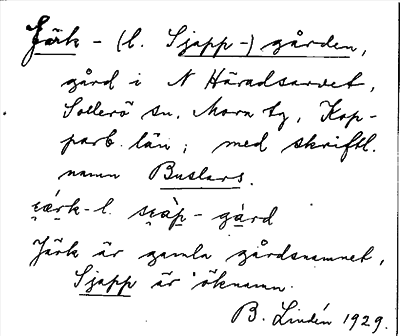 Järk - (l. Sjapp-) gården,
gård i N Häradsarvet,
Sollerö sn. Mora tg, Kop-
parb. län; med skriftl.
namn Buslars.
-l. - gård
Järk är gamla gårdsnamnet,
Sjapp är öknamn.
B. Lindén 1929.